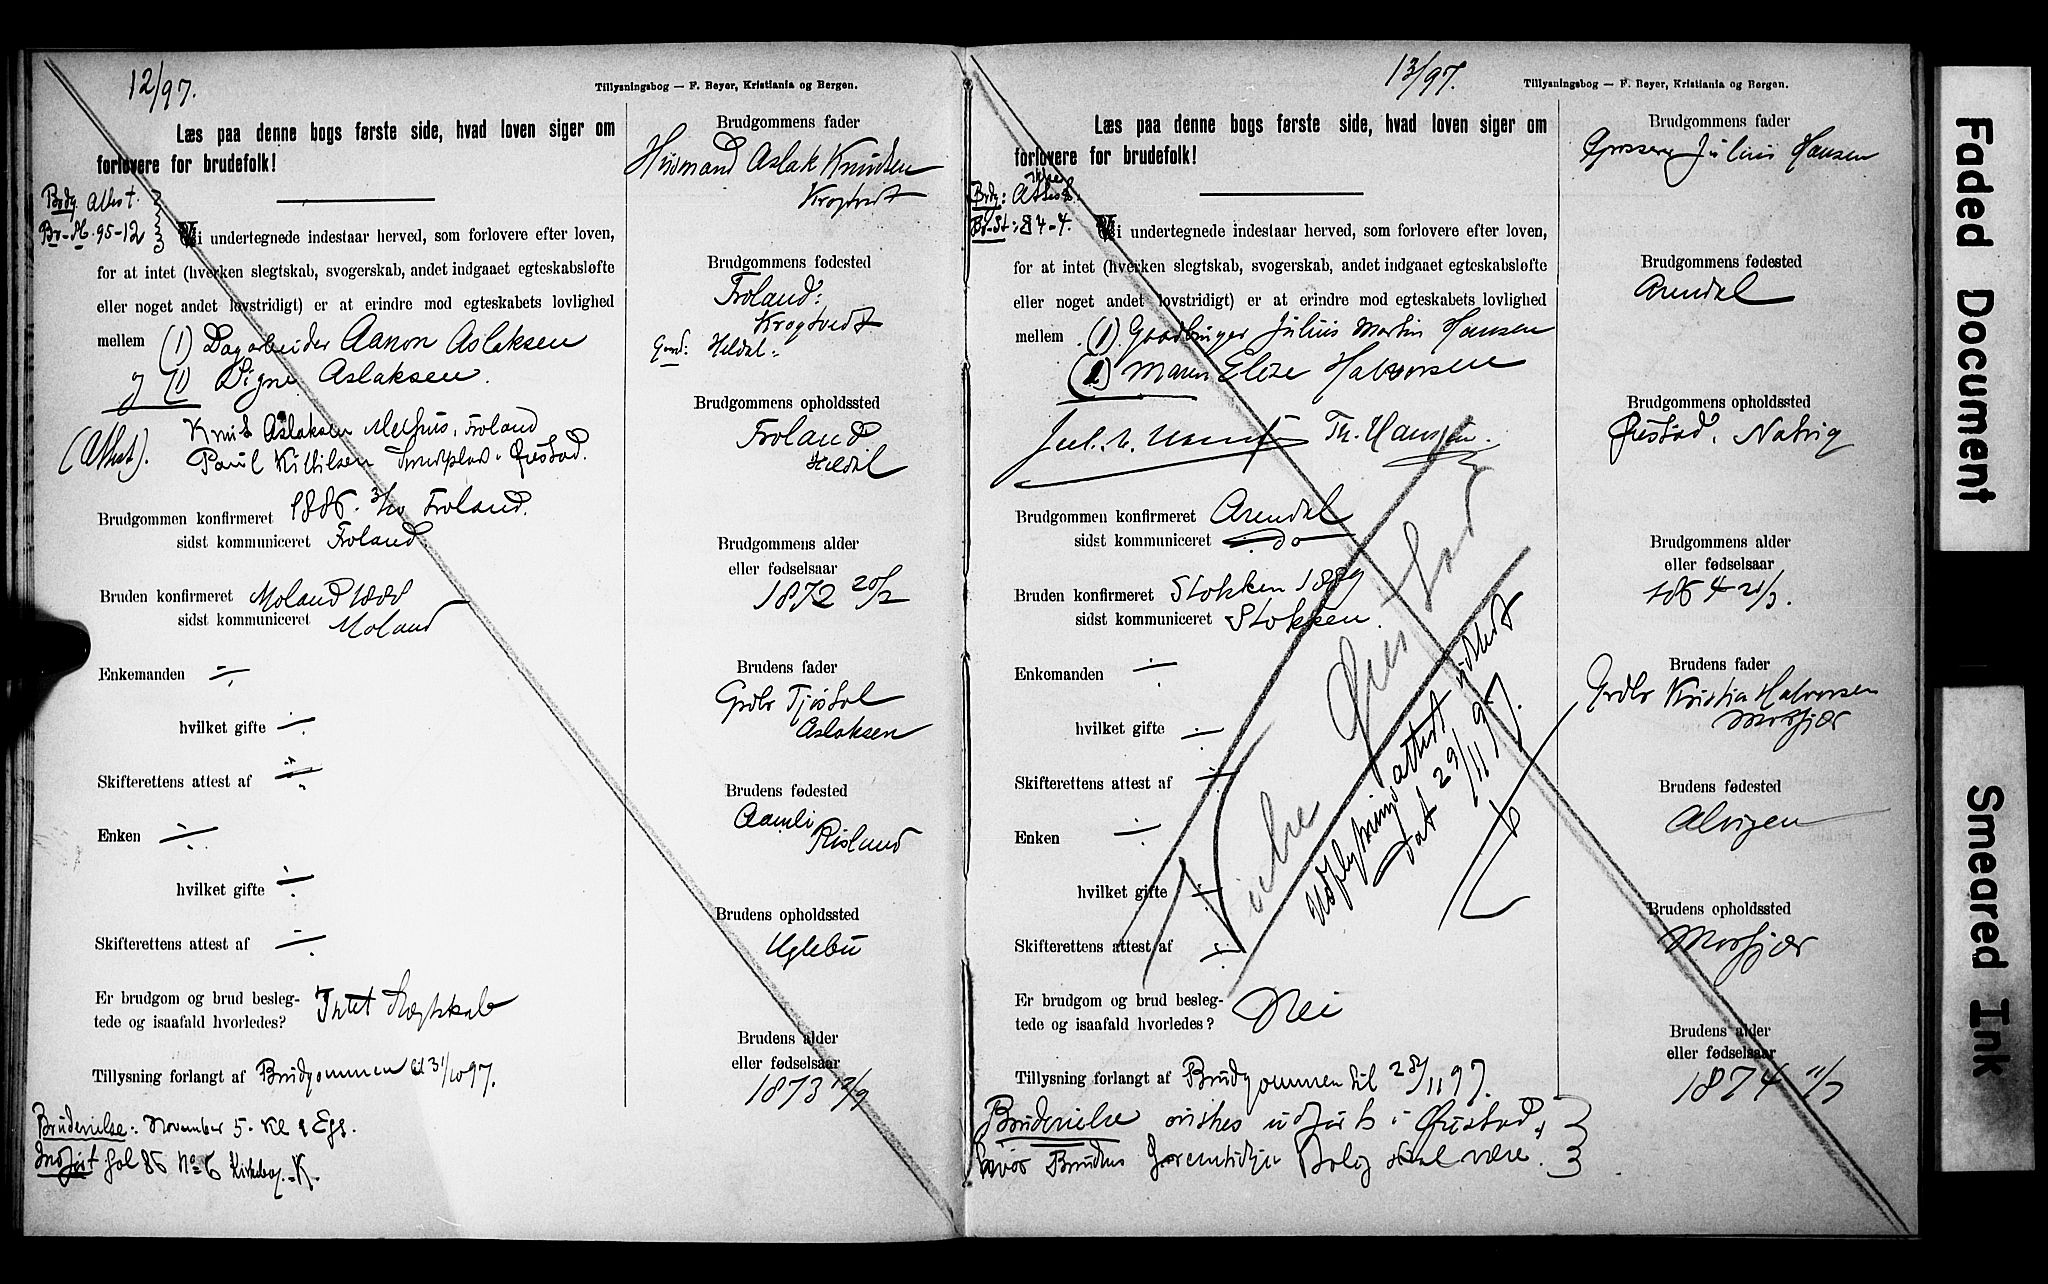 12/97.
Tillysningsbog — F. Beyer, Kristiania og Bergen.
Læs paa denne bogs første side, hvad loven siger om
forlovere for brudefolk!
Brudg. Attest.
Br-St. 95-12
Vi undertegnede indestaar herved, som forlovere efter loven,
for at intet (hverken slegtskab, svogerskab, andet indgaaet egteskabsløfte
eller noget andet lovstridigt) er at erindre mod egteskabets lovlighed
mellem (1) Dagarbeider Aanon Aslaksen
og (1) Signe Aslaksen.
Knut Aslaksen Froland
(Attest). Paul Kittilsen Øiestad.
Brudgommen konfirmeret 1886. 3/10 Froland.
sidst kommuniceret Froland.
Bruden konfirmeret Moland 1888
sidst kommuniceret Moland
Enkemanden ÷
hvilket gifte ÷
Skifterettens attest af ÷
Enken ÷
hvilket gifte ÷
Skifterettens attest af ÷
Er brudgom og brud besleg-
tede og isaafald hvorledes? Intet Slegtskab
Tillysning forlangt af Brudgommen d 31/10 97.
Brudevielse: November 5. Kl 9 Egs.
Indført fol 86 No 6 Kirkebog.-K.
Brudgommens fader
Husmand Aslak Knudsen
Krogtvedt
Brudgommens fødested
Froland:
Krogtvedt
Heldal:
Brudgommens opholdssted
Froland
Heldal
Brudgommens alder
eller fødselsaar
1872 20/2
Brudens fader
Grdbr Tjøstol
Aslaksen
Brudens fødested
Aamli
Risland
Brudens opholdssted
Uglebu
Brudens alder
eller fødselsaar
1873 12/9
13/97.
Tillysningsbog — F. Beyer, Kristiania og Bergen.
Læs paa denne bogs første side, hvad loven siger om
forlovere for brudefolk!
Brdg: Attest.
Br-St: 84-4.
Vi undertegnede indestaar herved, som forlovere efter loven,
for at intet (hverken slegtskab, svogerskab, andet indgaaet egteskabsløfte
eller noget andet lovstridigt) er at erindre mod egteskabets lovlighed
mellem (1). Gaardbruger Julius Martin Hansen
(1) Maren Elise Halvorsen
Th. Hansen.
Brudgommen konfirmeret Arendal
sidst kommuniceret do
Bruden konfirmeret Stokken 1889
sidst kommuniceret Stokken.
Enkemanden ÷
hvilket gifte ÷
Skifterettens attest af ÷
Enken ÷
hvilket gifte ÷
Skifterettens attest af ÷
Viede Øiestad
Udlysningsattest udstedt
dat 29/11 97.
Er brudgom og brud besleg-
tede og isaafald hvorledes? Nei
Tillysning forlangt af Brudgommen til 28/11 97.
Brudevielse ønskes udført i Øiestad,
hvor Brudens fremtidige Bolig skal være.
Brudgommens fader
Grosserer Julius Hansen
Brudgommens fødested
Arendal
Brudgommens opholdssted
Øiestad. Natvig
Brudgommens alder
eller fødselsaar
1864 21/3.
Brudens fader
Grdbr Kristia Halvorsen
Morfjær
Brudens fødested
Alvigen
Brudens opholdssted
Morfjær
Brudens alder
eller fødselsaar
1874 11/7
Faded Document
Smeared Ink